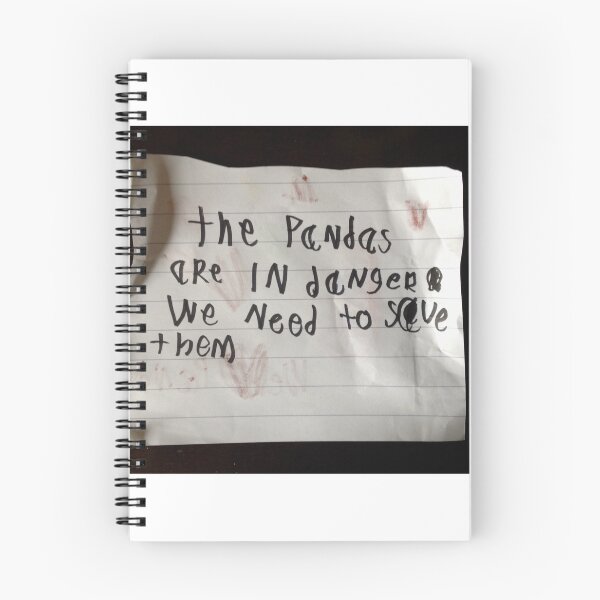 the Pandas
are IN danger.
We Need to save
them